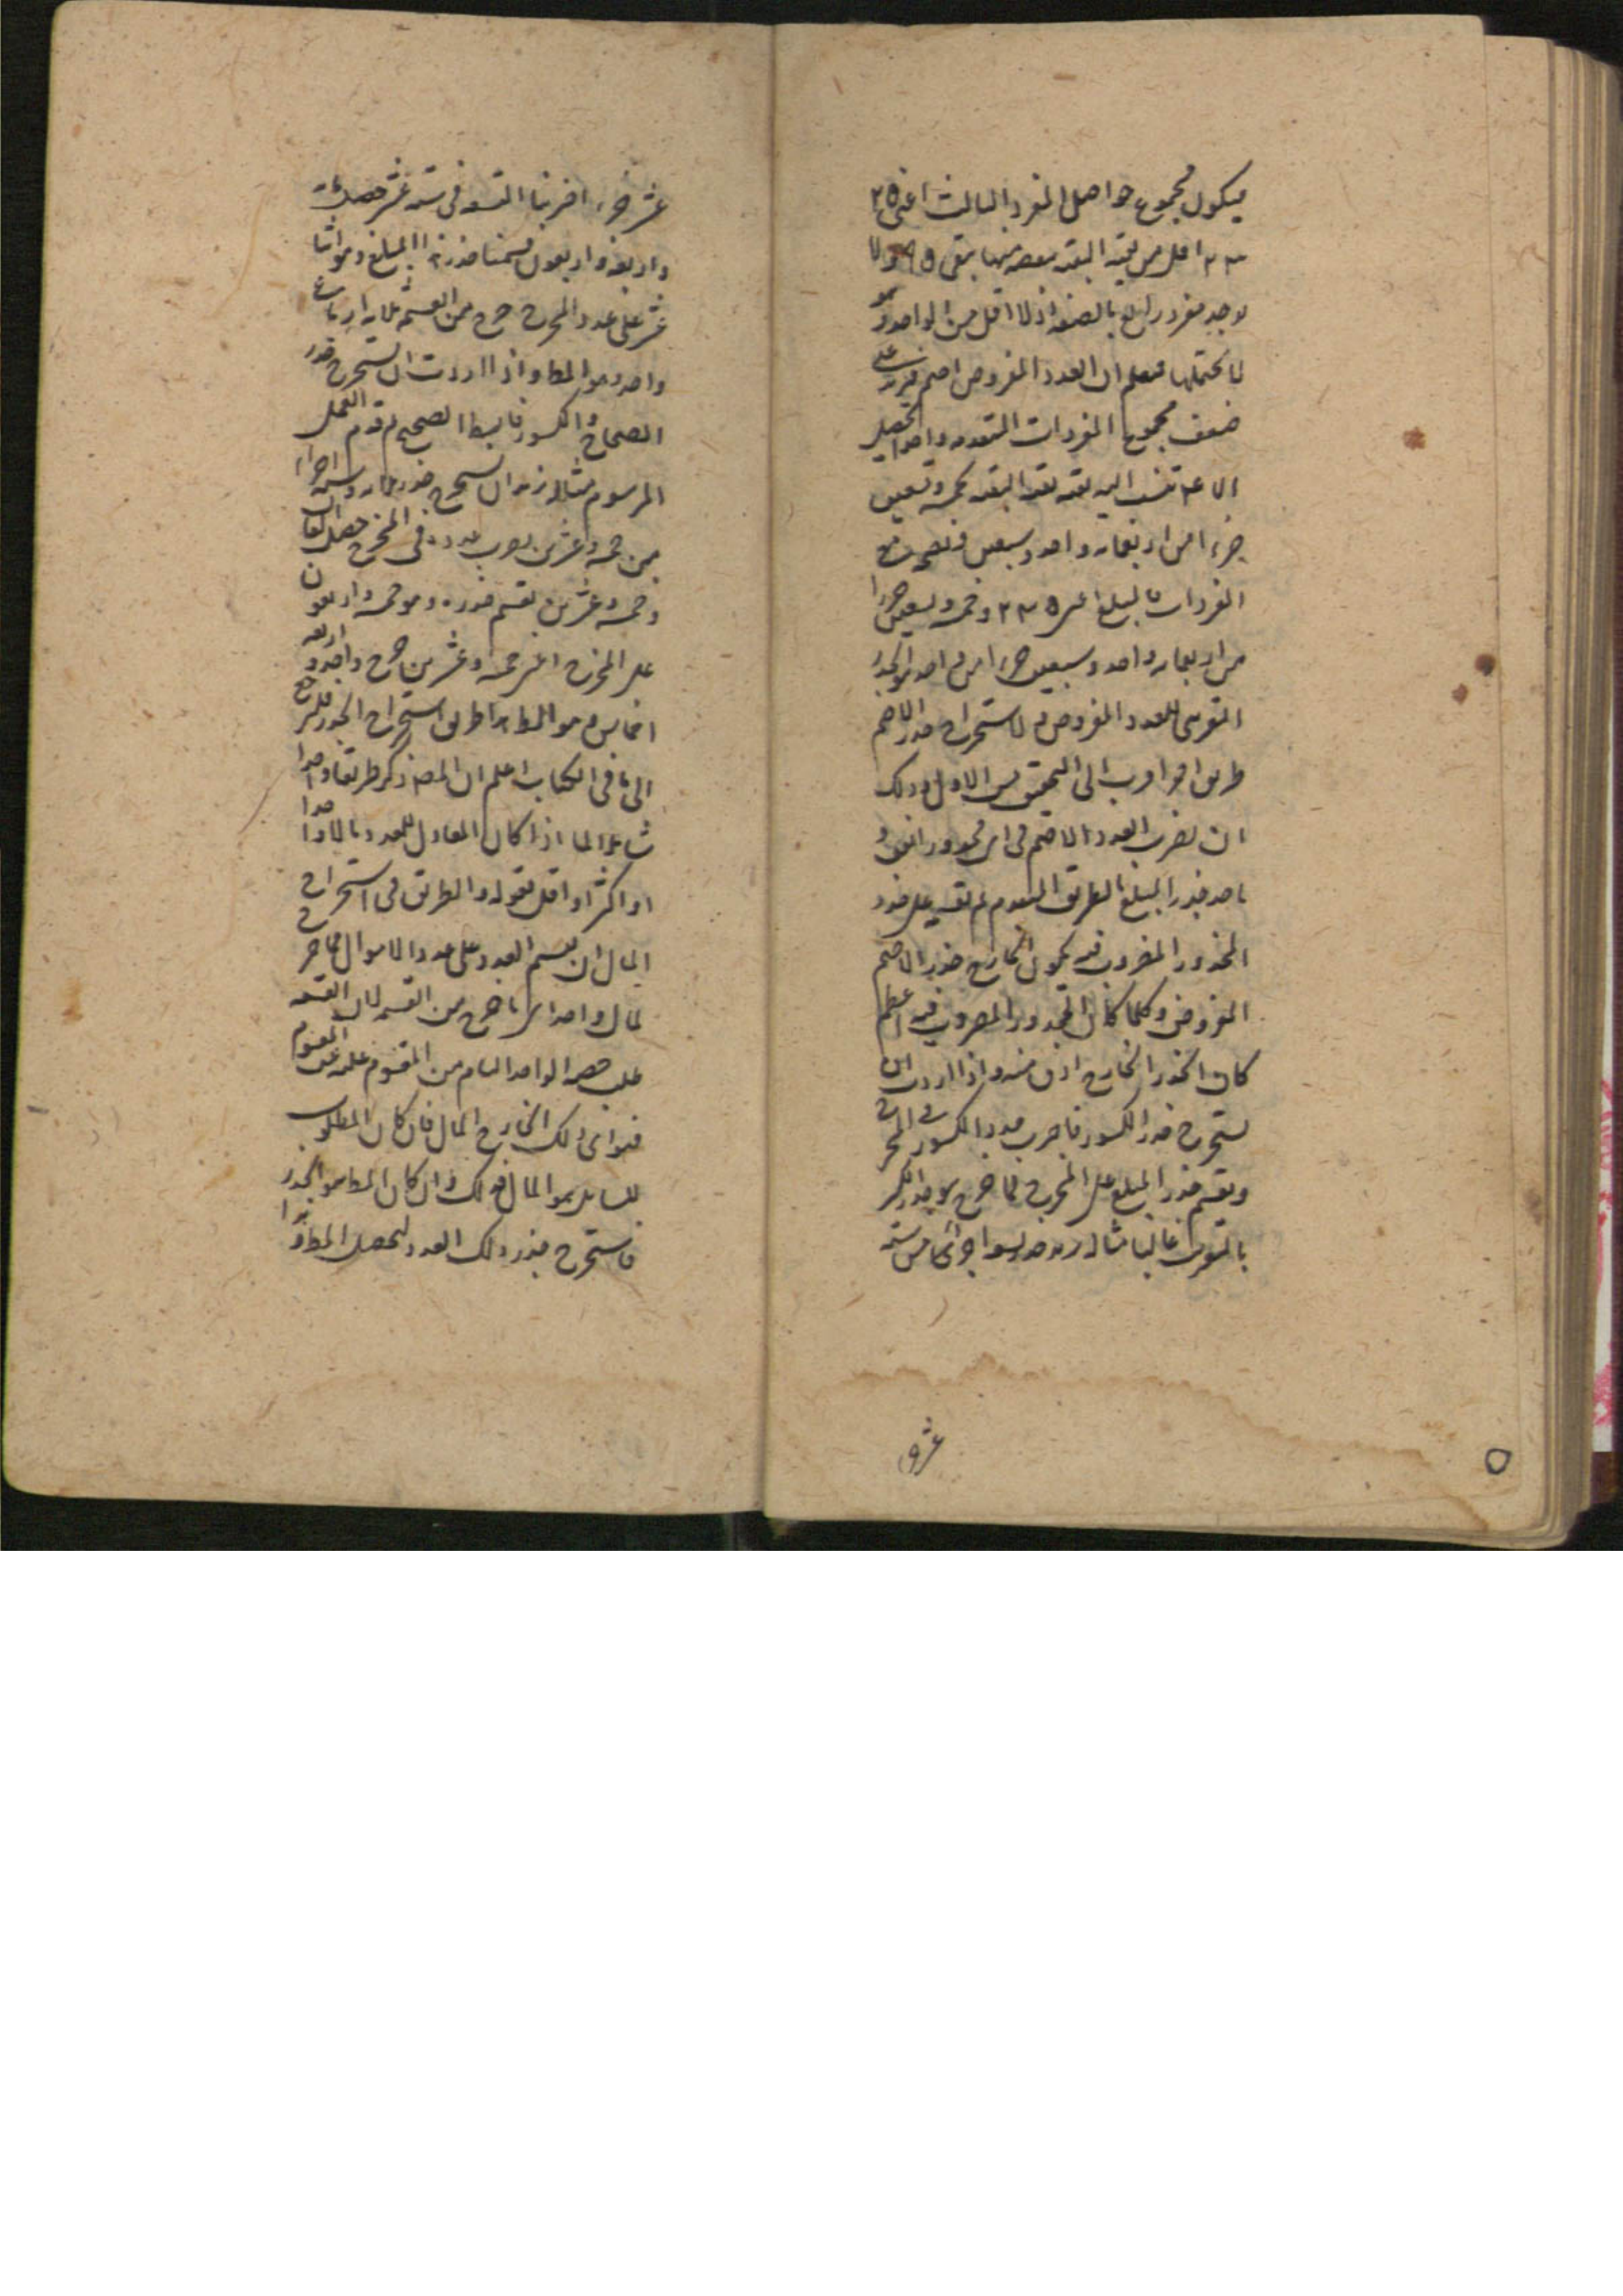 فيكون مجموع حواصل المفرد الثالث اعنى ٢٥
٢٣ اقل من بقية البقية ينقصه منها يبقى ٩٥ ولا
يوجد مفرد رابع بالصفة اذ لا اقل من الواحد وهو
لا يحتملها فيعلم ان العدد المفروض اصم فيزيد على
ضعف مجموع المفردات المتقدمة واحدا ليحصل
ما تنسب اليه بقية بقية البقية بخمسة وتسعين
جزءا من اربعمائة واحد وسبعين فيصير مع
المفردات بالمبلغ اعنى ٢٣٥ وخمسة وتسعين جزءا
من اربعمائة واحد وسبعين جزءا من واحد هو الجذر
التقريبى للعدد المفروض ولاستخراج جذر الاصم
طريق اخر اقرب الى التحقيق من الاول وذلك
ان تضرب العدد الاصم فى اى مجذور اتفق و
ناخذ جذر المبلغ بالطريق المتقدم ثم تقسمه على جذر
المجذور المضروب فيه يكون الخارج جذر الاصم
المفروض وكلما كان المجذور المضروب فيه اعظم
كان الجذر الخارج ادق منه واذا اردت ان
تستخرج جذر الكسور فاضرب عدد الكسور فى المخرج
وتقسم جذر المبلغ على المخرج فما خرج هو جذر الكسر
بالتقريب غالبا مثاله نريد جذر تسعة اجزاء من ستة
عشر
عشر جزءا ضربنا التسعة فى ستة عشر حصل مائة
واربعة واربعون قسمنا جذر هذا المبلغ وهو اثنا
عشر على عدد المخرج خرج من القسمة ثلاثة ارباع
واحد وهو المط واذا اردت ان تستخرج جذر
الصحاح والكسور فابسط الصحيح ثم قدم العمل
المرسوم مثاله نريد ان نستخرج جذر ثلاثة وستة اجزاء
من خمسة وعشرين نضرب عدده فى المخرج حصل الفان
وخمسة وعشرين نقسم جذره وهو خمسة واربعون
على المخرج اعنى خمسة وعشرين خرج واحد واربعة
اخماس وهو المط هذا طريق استخراج الجذر فلنرجع
الى ما فى الكتاب اعلم ان المصنف ذكر طريقا واحدا
شاملا لما اذا كان المعادل للعدد مالا واحدا
او اكثر او اقل بقوله والطريق فى استخراج
المال ان يقسم العدد على عدد الاموال فما خرج
لمال واحد اى ما خرج من القسمة لان القسمة
طلب حصة الواحد التام من المقسوم عليه من المقسوم
فهو اى ذلك الخارج المال فان كان المطلوب
للسائل هو المال فذلك وان كان المط هو الجذر
فاستخرج جذر ذلك العدد ليحصل المط هذا